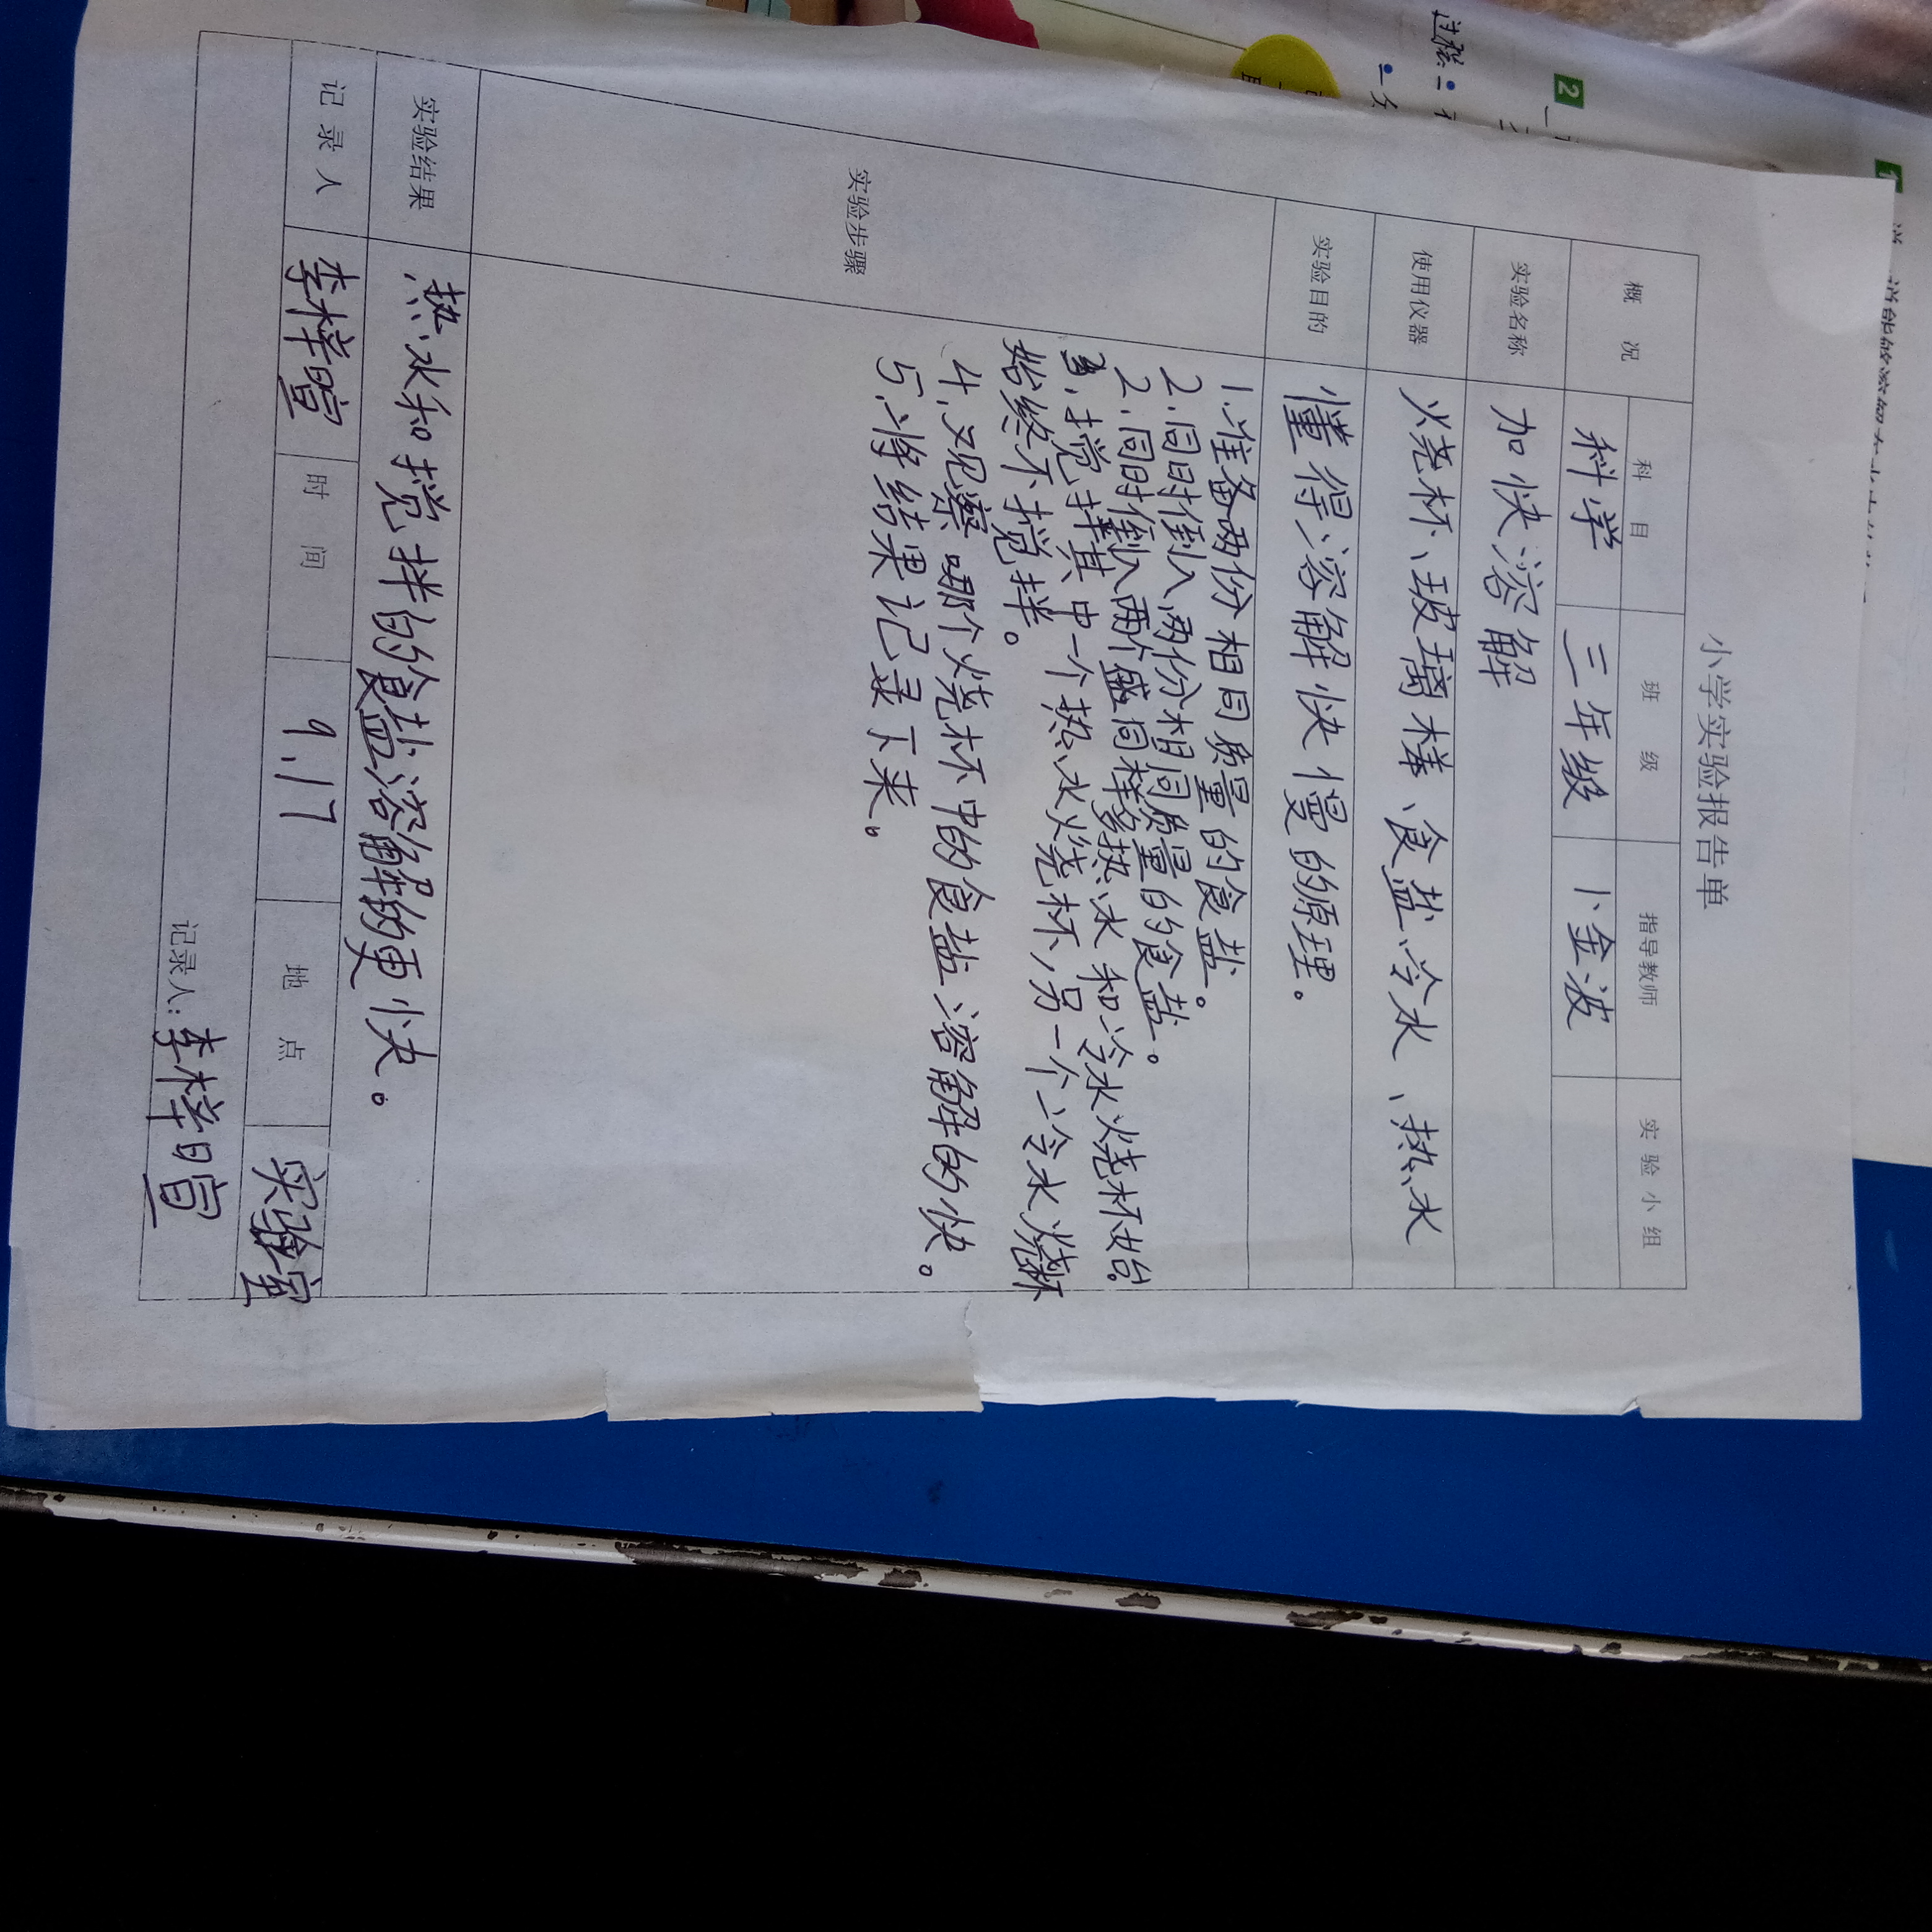 小学实验报告单
概 况 科 目 班 级 指导教师 实 验 小 组
科学 三年级 卜金波
实验名称 加快溶解
使用仪器 烧杯、玻璃棒、食盐、冷水、热水
实验目的 懂得溶解快慢的原理。
实验步骤
1.准备两份相同质量的食盐。
2.同时倒入两份相同质量的食盐。
2.同时倒入两个盛同样多热水和冷水烧杯
3、搅拌其中一个热水烧杯,另一个冷水烧杯
始终不搅拌。
4、观察哪个烧杯中的食盐溶解的快。
5、将结果记录下来。
实验结果 热水和搅拌的食盐溶解的更快。
记 录 人 李梓暄 时 间 9.17 地 点 实验室
记录人:李梓暄
2
过程